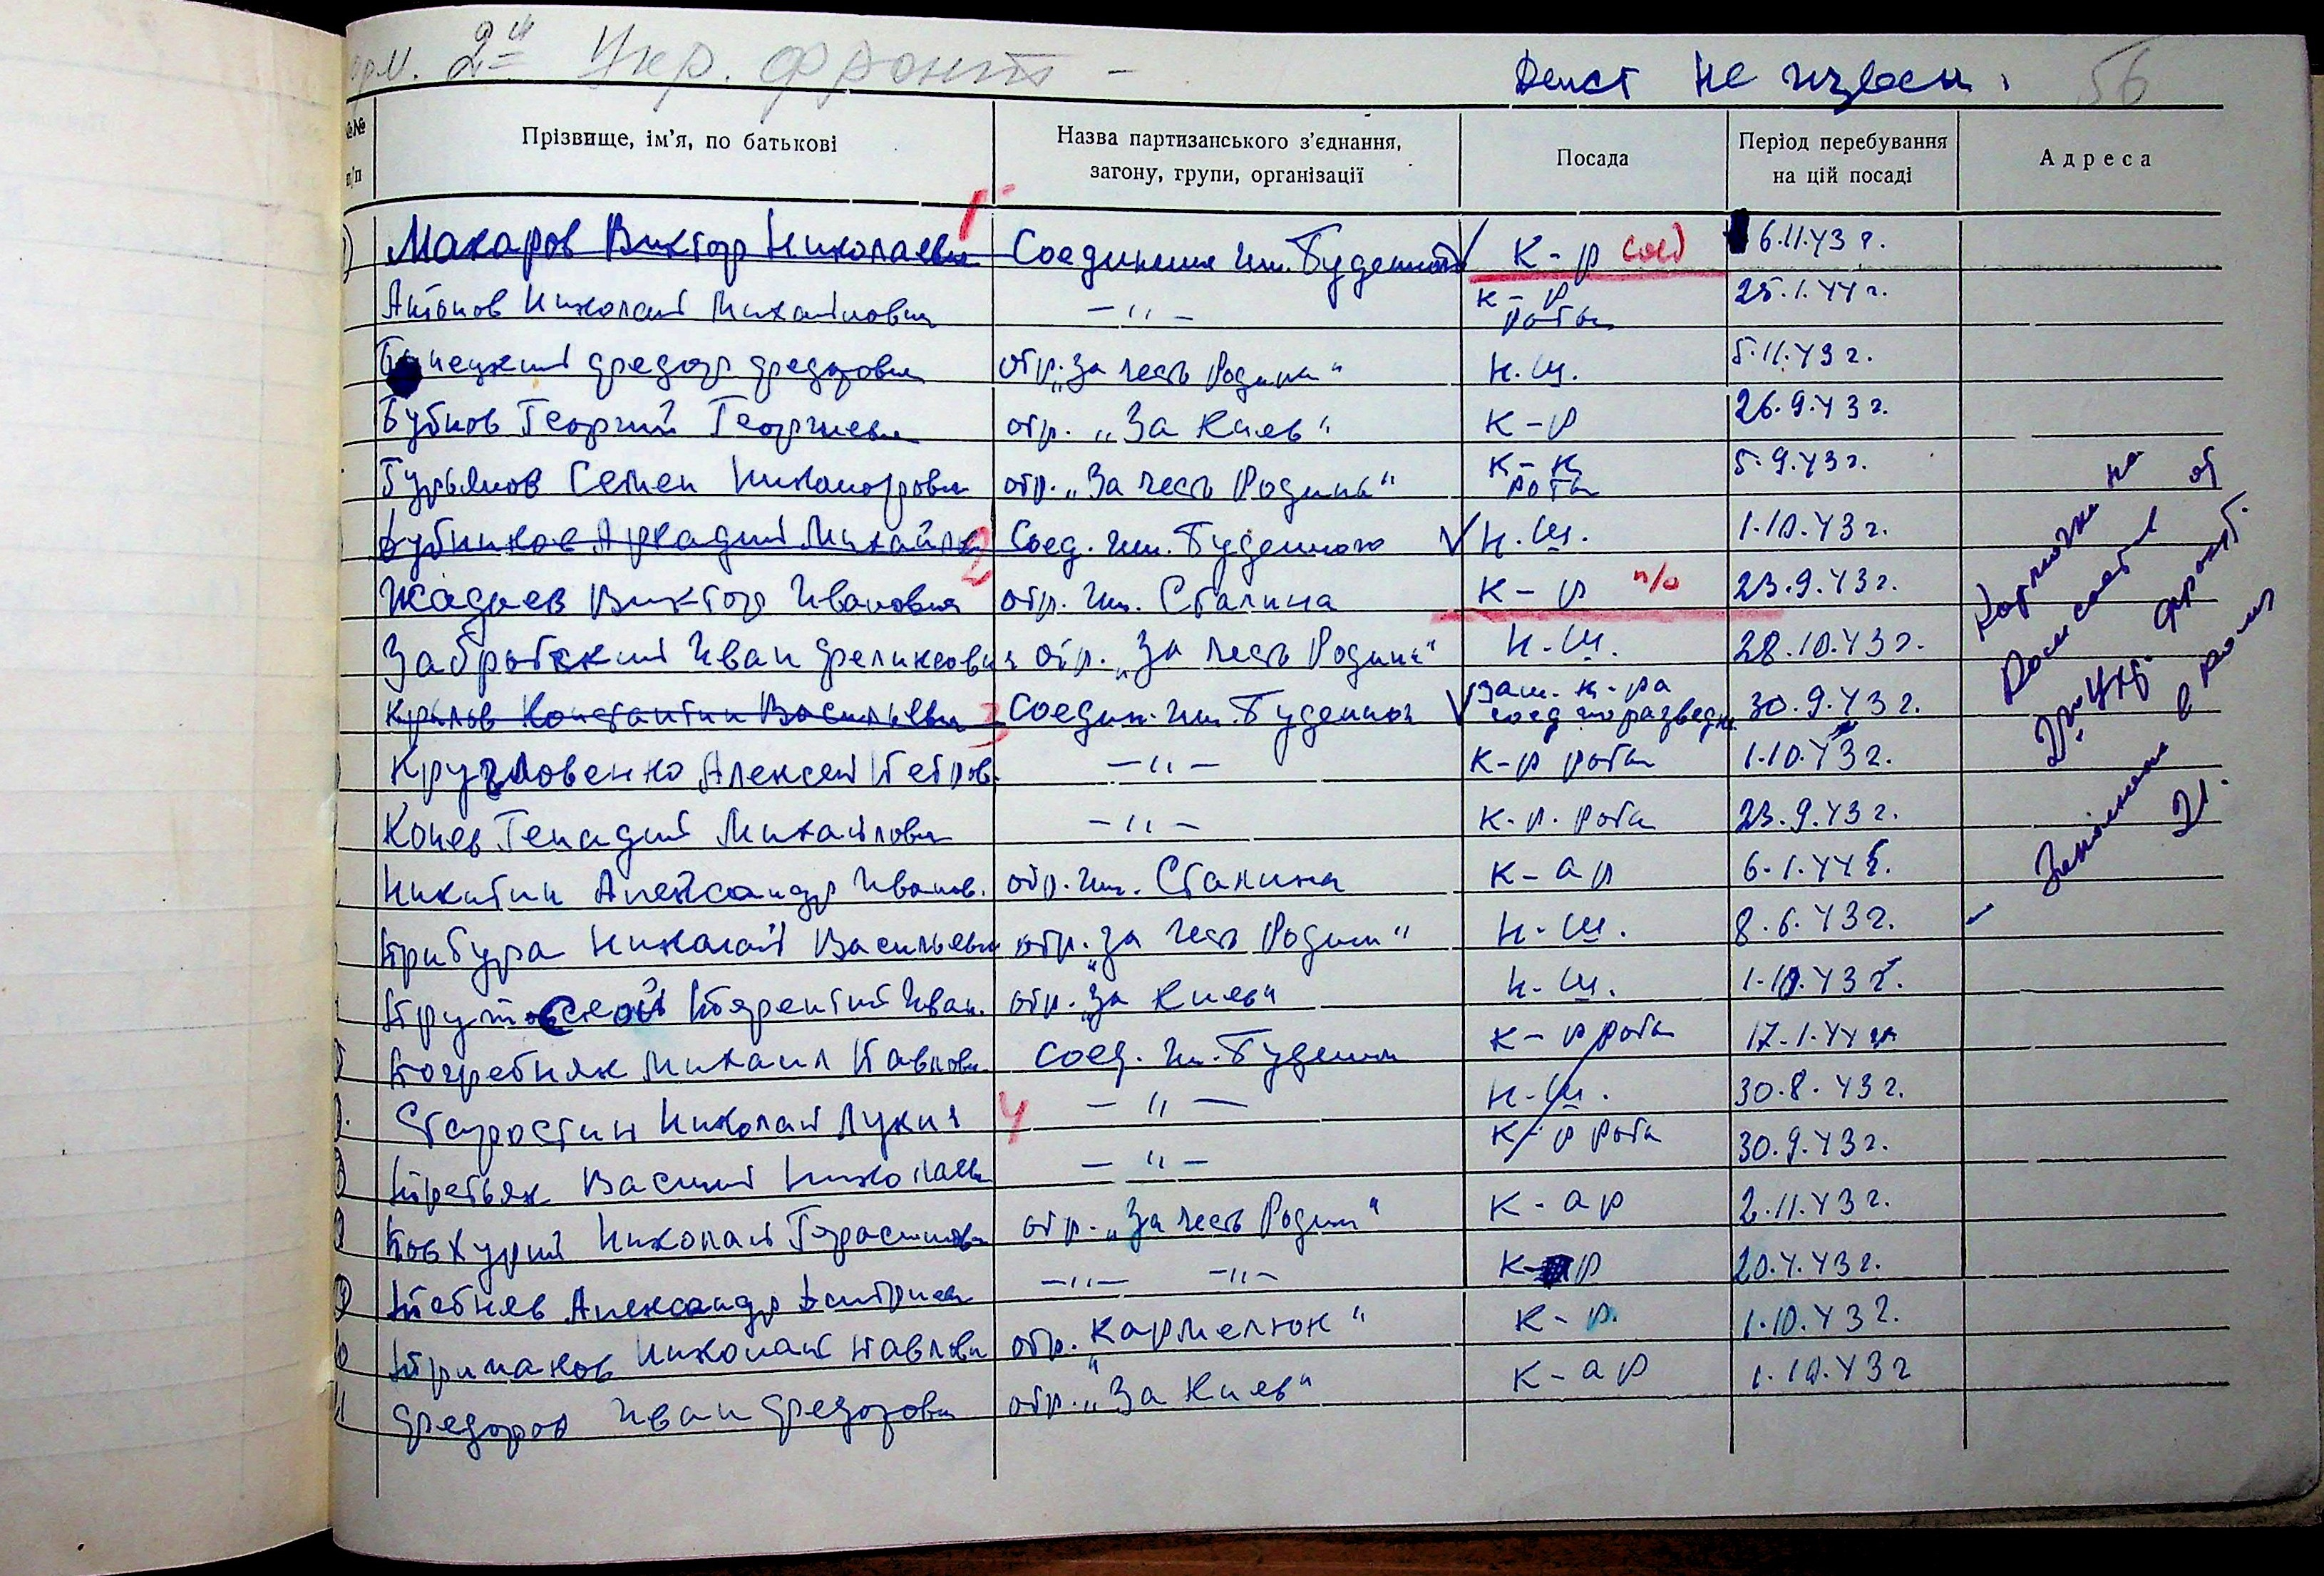 2й Укр. фронт –
Дейст не извесн.
56
№№ п/п
Прізвище, ім'я, по батькові
Назва партизанського з'єднання, загону, групи, організації
Посада
Період перебування на цій посаді
Адреса
Макаров Виктор Николаевич 1 Соединение им. Буденного К-р соед 6.11.43 г.
Антонов Николай Михайлович –〃– к-р роты 25.1.44 г.
Федор Федорович отр. „За честь Родины“ н.ш. 5.11.43 г.
Бубнов Георгий Георгиевич отр. „За Киев“ к-р 26.9.43 г.
Гурьянов Семен Никанорович отр. „За честь Родины“ к-к роты 5.9.43 г.
Дубников Аркадий Михайл 2 Соед. им. Буденного н.ш. 1.10.43 г.
Жадаев Виктор Иванович отр. им. Сталина к-р п/о 23.9.43 г.
Забротский Иван Феликсович отр. „За честь Родины“ н.ш. 28.10.43 г.
Крылов Константин Васильевич 3 Соедин. им. Буденног зам. к-ра соед по разведке 30.9.43 г.
Кругловенко Алексей Петров. –〃– к-р роты 1.10.43 г.
Конев Генадий Михайлович –〃– к-р. роты 23.9.43 г.
Никитин Александр Иванов. отр. им. Сталина к-ар 6.1.44 г.
Прибура Николай Васильевич отр. „За честь Родины“ н.ш. 8.6.43 г.
Иван. отр. „За Киев“ н.ш. 1.10.43 г.
Погребняк Михаил Павлович соед. им. Буденн к-р роты 17.1.44 г.
Старостин Николай Лукич 4 –〃– н.ш. 30.8.43 г.
Третьяк Василий Николаев –〃– к-р роты 30.9.43 г.
Николай Герасимович отр. „За честь Родины“ к-ар 2.11.43 г.
Александр Дмитриев –〃– –〃– к-р 20.4.43 г.
Николай Павлович отр. „Кармелюк“ к-р. 1.10.43 г.
Федоров Иван Федорович отр. „За Киев“ к-ар 1.10.43 г
на
от
2го Укр. фронт.
в
21.